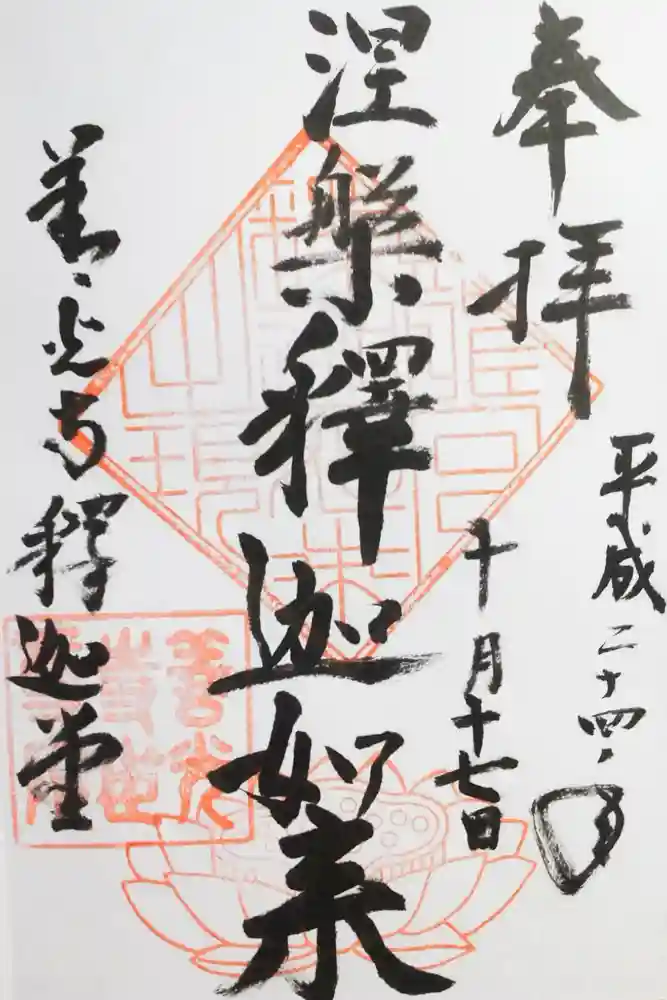 奉拝
平成二十四年
十月十七日
涅槃釋迦如来
善光寺釋迦堂